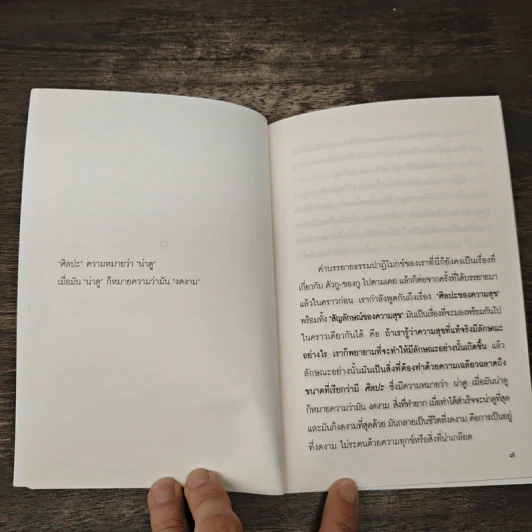 'ศิลปะ' ความหมายว่า 'น่าดู'
เมื่อมัน 'น่าดู' ก็หมายความว่ามัน 'งดงาม'
คำบรรยายธรรมปาฏิโมกข์ของเราที่นี่ก็ยังคงเป็นเรื่องที่
เกี่ยวกับ ตัวกู-ของกู ไปตามเคย แล้วก็ต่อจากครั้งที่ได้บรรยายมา
แล้วในคราวก่อน เรากำลังพูดกันถึงเรื่อง 'ศิลปะของความสุข'
พร้อมทั้ง 'สัญลักษณ์ของความสุข' มันเป็นเรื่องที่จะมองพร้อมกันไป
ในคราวเดียวกันได้ คือ ถ้าเรารู้ว่าความสุขที่แท้จริงมีลักษณะ
อย่างไร เราก็พยายามที่จะทำให้มีลักษณะอย่างนั้นเกิดขึ้น แล้ว
ลักษณะอย่างนั้นมันเป็นสิ่งที่ต้องทำด้วยความเฉลียวฉลาดถึง
ขนาดที่เรียกว่ามี ศิลปะ ซึ่งมีความหมายว่า น่าดู เมื่อมันน่าดู
ก็หมายความว่ามัน งดงาม สิ่งที่ทำยาก เมื่อทำได้สำเร็จจะน่าดูที่สุด
และมันก็งดงามที่สุดด้วย มันกลายเป็นชีวิตที่งดงาม คือการเป็นอยู่
ที่งดงาม ไม่ระคนด้วยความทุกข์หรือสิ่งที่น่าเกลียด
๗